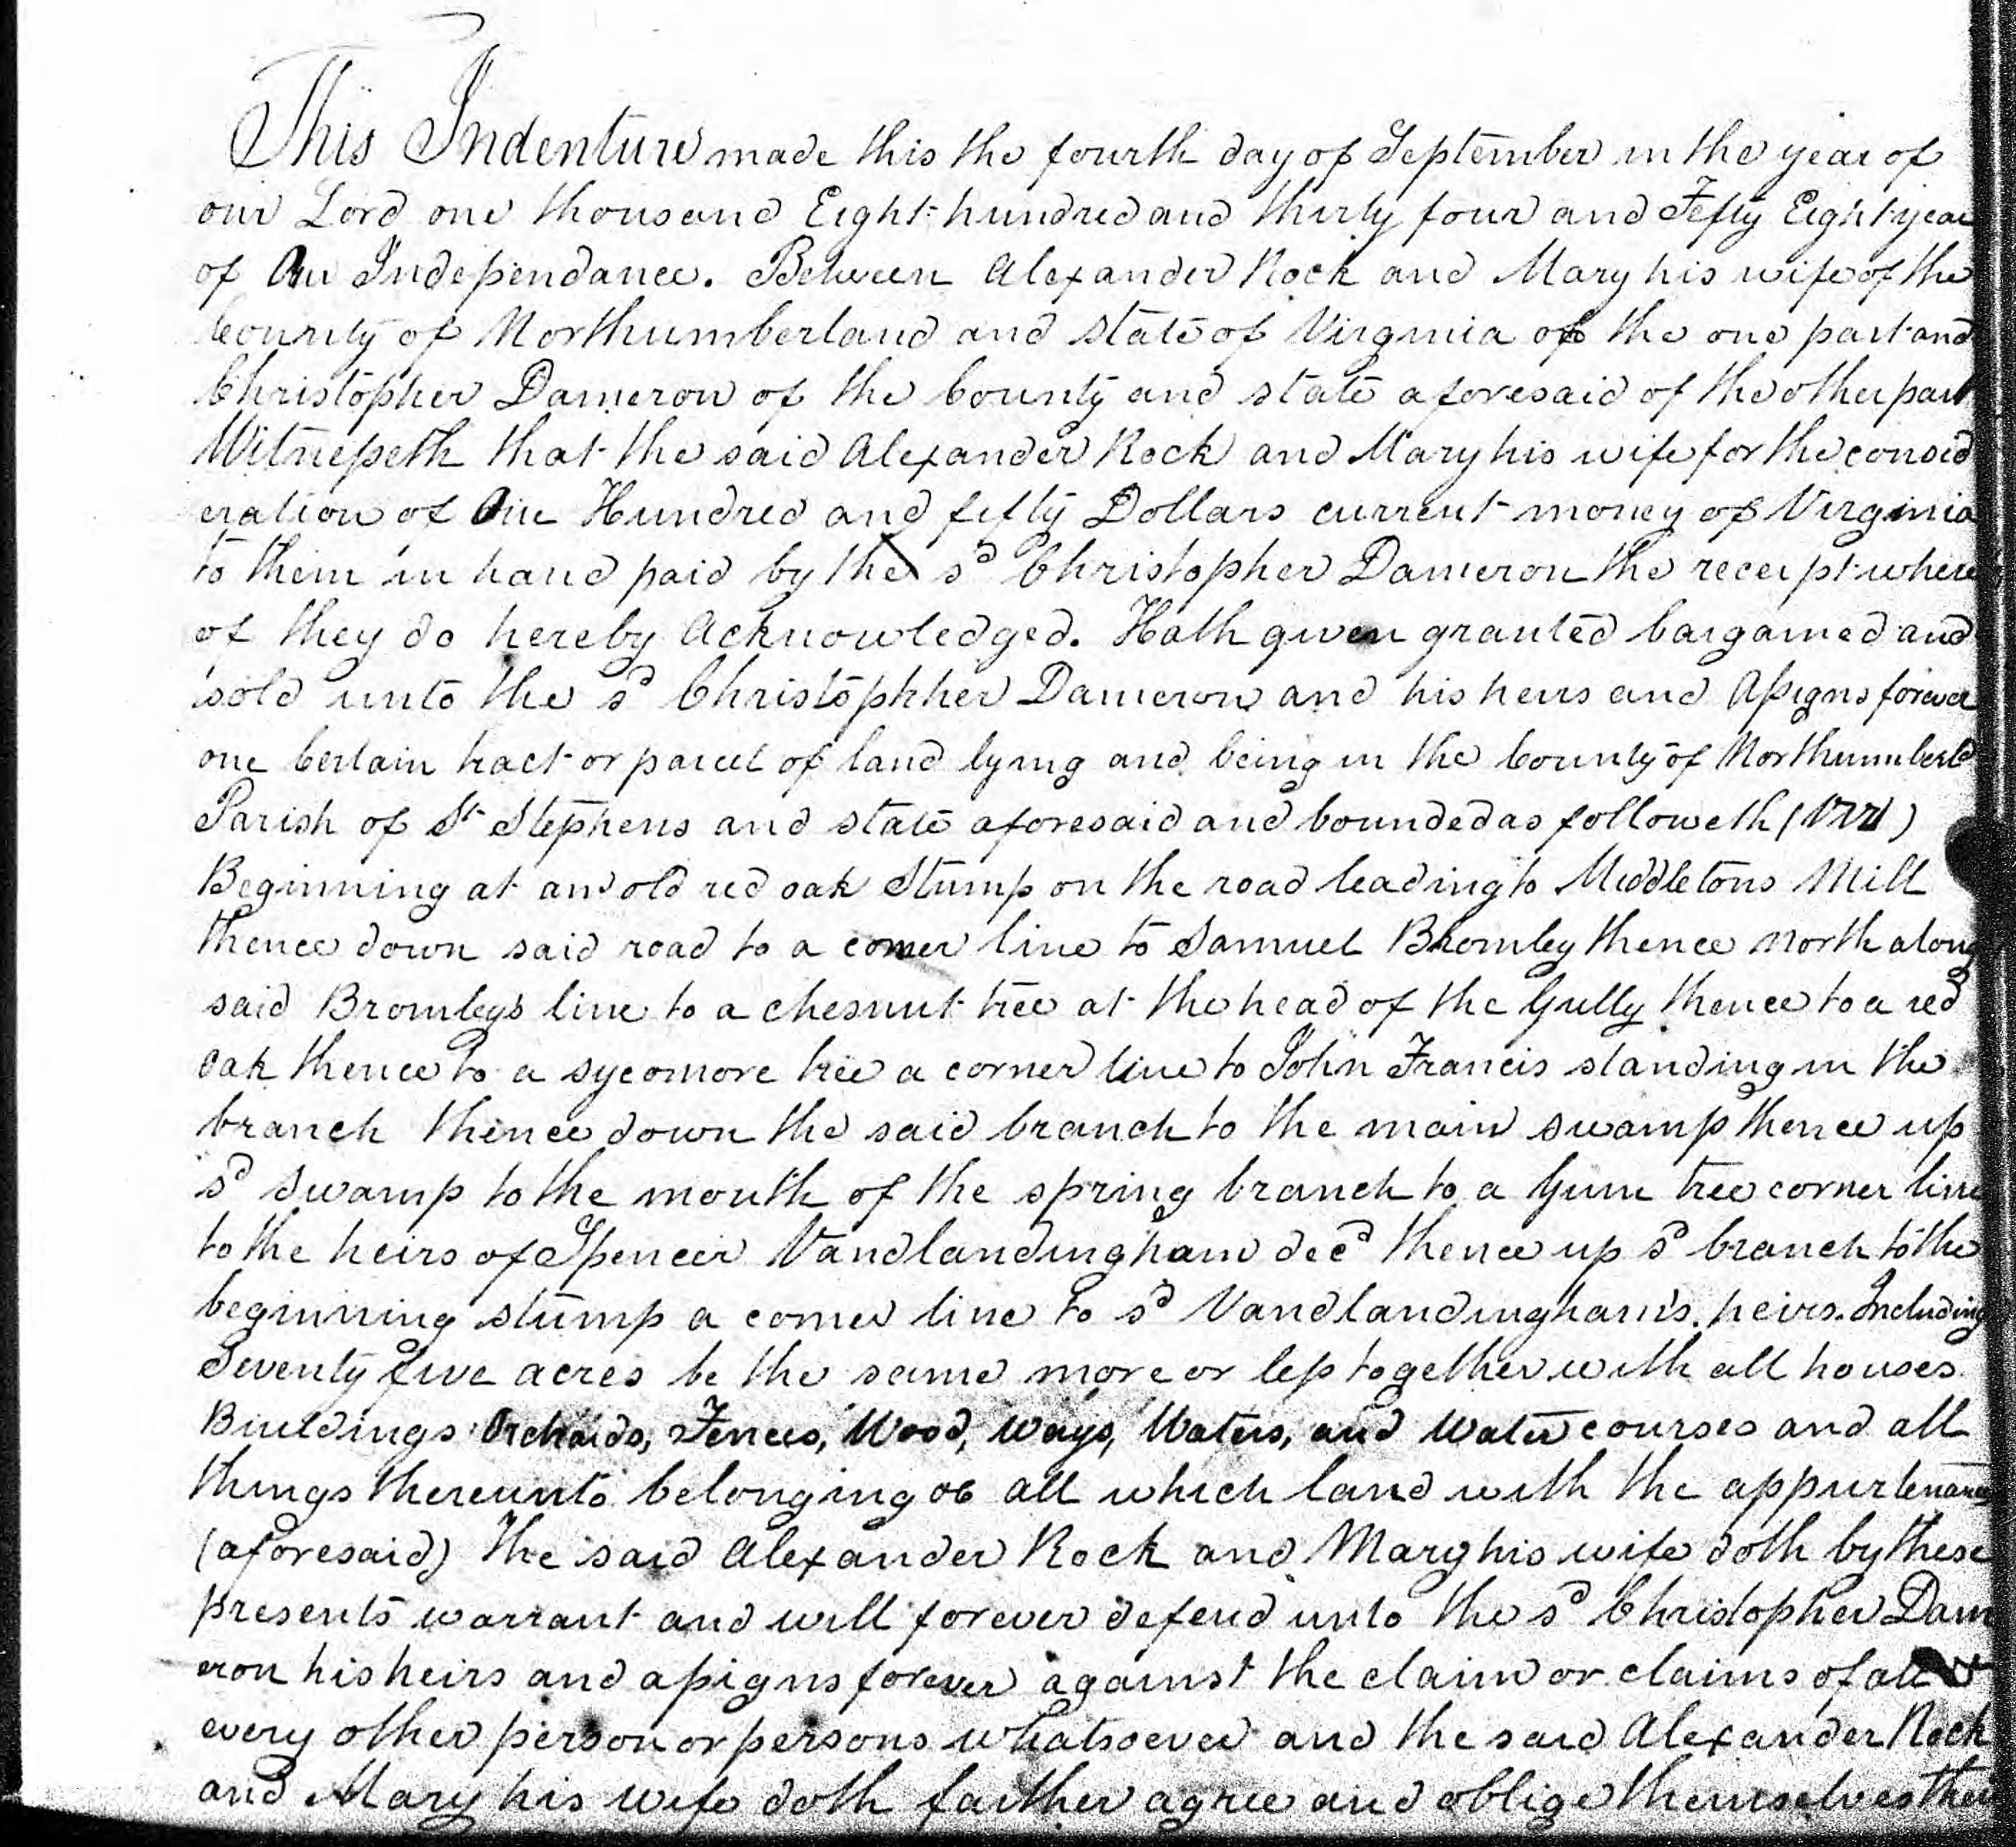 This Indenture made this the fourth day of September in the year of
our Lord one thousand Eight hundred and thirty four and Fefty Eight year
of Our Independance. Between Alexander Rock and Mary his wife of the
County of Northumberland and state of Virginia of the one part and
Christopher Dameron of the County and state aforesaid of the other part
Witnesseth that the said Alexander Rock and Mary his wife for the consid
eration of One Hundred and fifty Dollars current money of Virginia
to them in hand paid by the sd Christopher Dameron the receipt where
of they do hereby Acknowledged. Hath given granted bargained and
sold unto the sd Christophher Dameron and his heirs and Assigns forever
one Certain tract or parcel of land lying and being in the County of Northumberld
Parish of St Stephens and state aforesaid and bounded as followeth (Vizt)
Beginning at an old red oak Stump on the road leading to Middletons Mill
thence down said road to a corner line to Samuel Bromley thence north along
said Bromley's line to a chesnut tree at the head of the Gully thence to a red
oak thence to a sycomore tree a corner line to John Francis standing in the
branch thence down the said branch to the main swamp thence up
sd swamp to the mouth of the spring branch to a Gum tree corner line
to the heirs of Spencer Vandlandingham decd thence up sd branch to the
beginning stump a corner line to sd Vandlandingham's heirs. Including
Seventy five acres be the same more or less together with all houses
Buildings Orchards, Fences, Wood, Ways, Waters, and Water courses and all
things thereunto belonging all which land with the appurtenances
(aforesaid) The said Alexander Rock and Mary his wife doth by these
presents warrant and will forever defend unto the sd Christopher Dam
eron his heirs and assigns forever against the claim or claims of all &
every other person or persons whatsoever and the said Alexander Rock
and Mary his wife doth farther agree and oblige themselves their